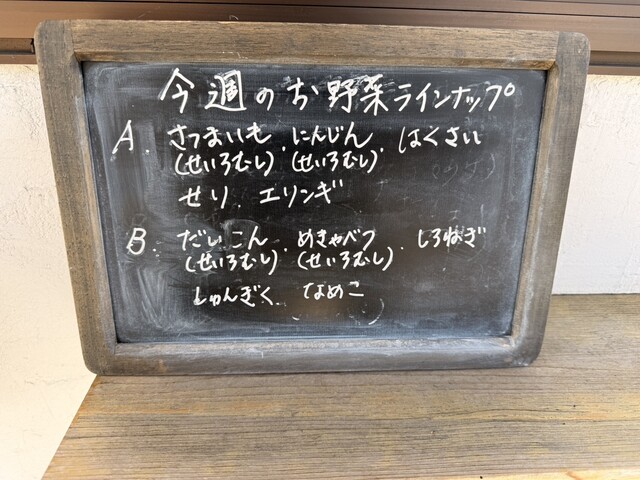 今週のお野菜ラインナップ
A. さつまいも・にんじん・はくさい
(せいろむし)(せいろむし)
せり．エリンギ
B. だいこん・めきゃべつ・しろねぎ
(せいろむし)(せいろむし)
しゅんぎく．なめこ